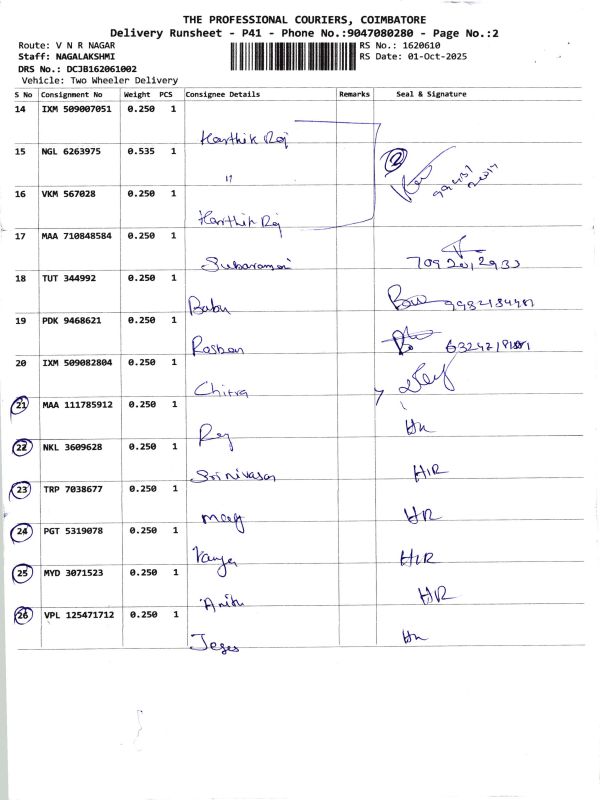 THE PROFESSIONAL COURIERS, COIMBATORE
Delivery Runsheet - P41 - Phone No.:9047080280 - Page No.:2
Route: V N R NAGAR RS No.: 1620610
Staff: NAGALAKSHMI RS Date: 01-Oct-2025
DRS No.: DCJB162061002
Vehicle: Two Wheeler Delivery
S No Consignment No Weight PCS Consignee Details Remarks Seal & Signature
14 IXM 509007051 0.250 1
Karthik Raj
15 NGL 6263975 0.535 1
"
2
16 VKM 567028 0.250 1
Karthik Raj
17 MAA 710848584 0.250 1
Subaramani
18 TUT 344992 0.250 1
Babu
19 PDK 9468621 0.250 1
Rosban
20 IXM 509082804 0.250 1
Chitra
21 MAA 111785912 0.250 1
Raj
22 NKL 3609628 0.250 1
Srinivasan HR
23 TRP 7038677 0.250 1
Mary HR
24 PGT 5319078 0.250 1
HR
25 MYD 3071523 0.250 1
HR
26 VPL 125471712 0.250 1